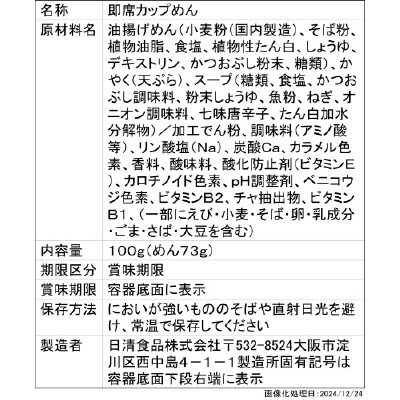 名称 即席カップめん
原材料名 油揚げめん(小麦粉(国内製造)、そば粉、
植物油脂、食塩、植物性たん白、しょうゆ、
デキストリン、かつおぶし粉末、糖類)、か
やく(天ぷら)、スープ(糖類、食塩、かつお
ぶし調味料、粉末しょうゆ、魚粉、ねぎ、オ
ニオン調味料、七味唐辛子、たん白加水
分解物)/加工でん粉、調味料(アミノ酸
等)、リン酸塩(Na)、炭酸Ca、カラメル色
素、香料、酸味料、酸化防止剤(ビタミンE
)、カロチノイド色素、pH調整剤、ベニコウ
ジ色素、ビタミンB2、チャ抽出物、ビタミン
B1、(一部にえび・小麦・そば・卵・乳成分
・ごま・さば・大豆を含む)
内容量 100g(めん73g)
期限区分 賞味期限
賞味期限 容器底面に表示
保存方法 においが強いもののそばや直射日光を避
け、常温で保存してください
製造者 日清食品株式会社〒532-8524大阪市淀
川区西中島4-1-1製造所固有記号は
容器底面下段右端に表示
画像化処理日:2024/12/24